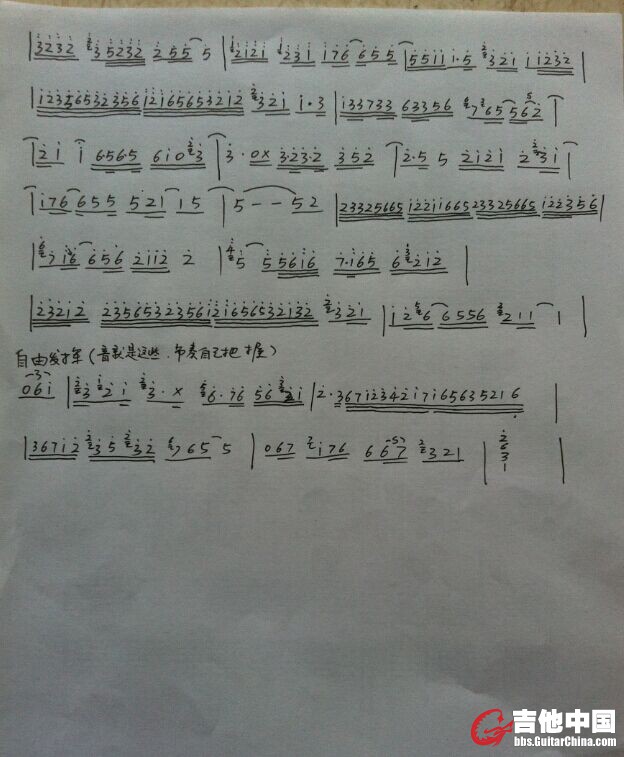 |3232 235232 255 5|12121 1231 176 655|5511 1·5 2321 11232|
|123565323561216565321 2 2321 1·3|133733 63356 67265 562|
|21 1 6565 61023|3·0X 323·2 352|2·5 5 2121 2231|
|176 655 521 15|5--52|23325665 12211665 23325665 1223 56|
|6716 656 2112 2|45 55616 7·165 63212|
|23212 23565323561216565321 32 2321|1256 6556 3211 1|
自由发挥(音就是这些,节奏自己把握)
-3-
061|23121 23·X 56·76 56321|2·3671234217165635216|
|36712 235232 6765 5|067 7176 667 2321|2631|
吉他中国
bbs.GuitarChina.com